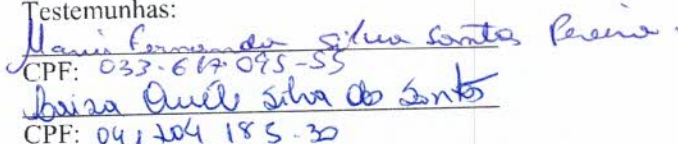 Testemunhas:
Maria Fernanda Silva Santos Pereira.
CPF: 033-617.095-55
Silva dos Santos
CPF: 041704 185-30